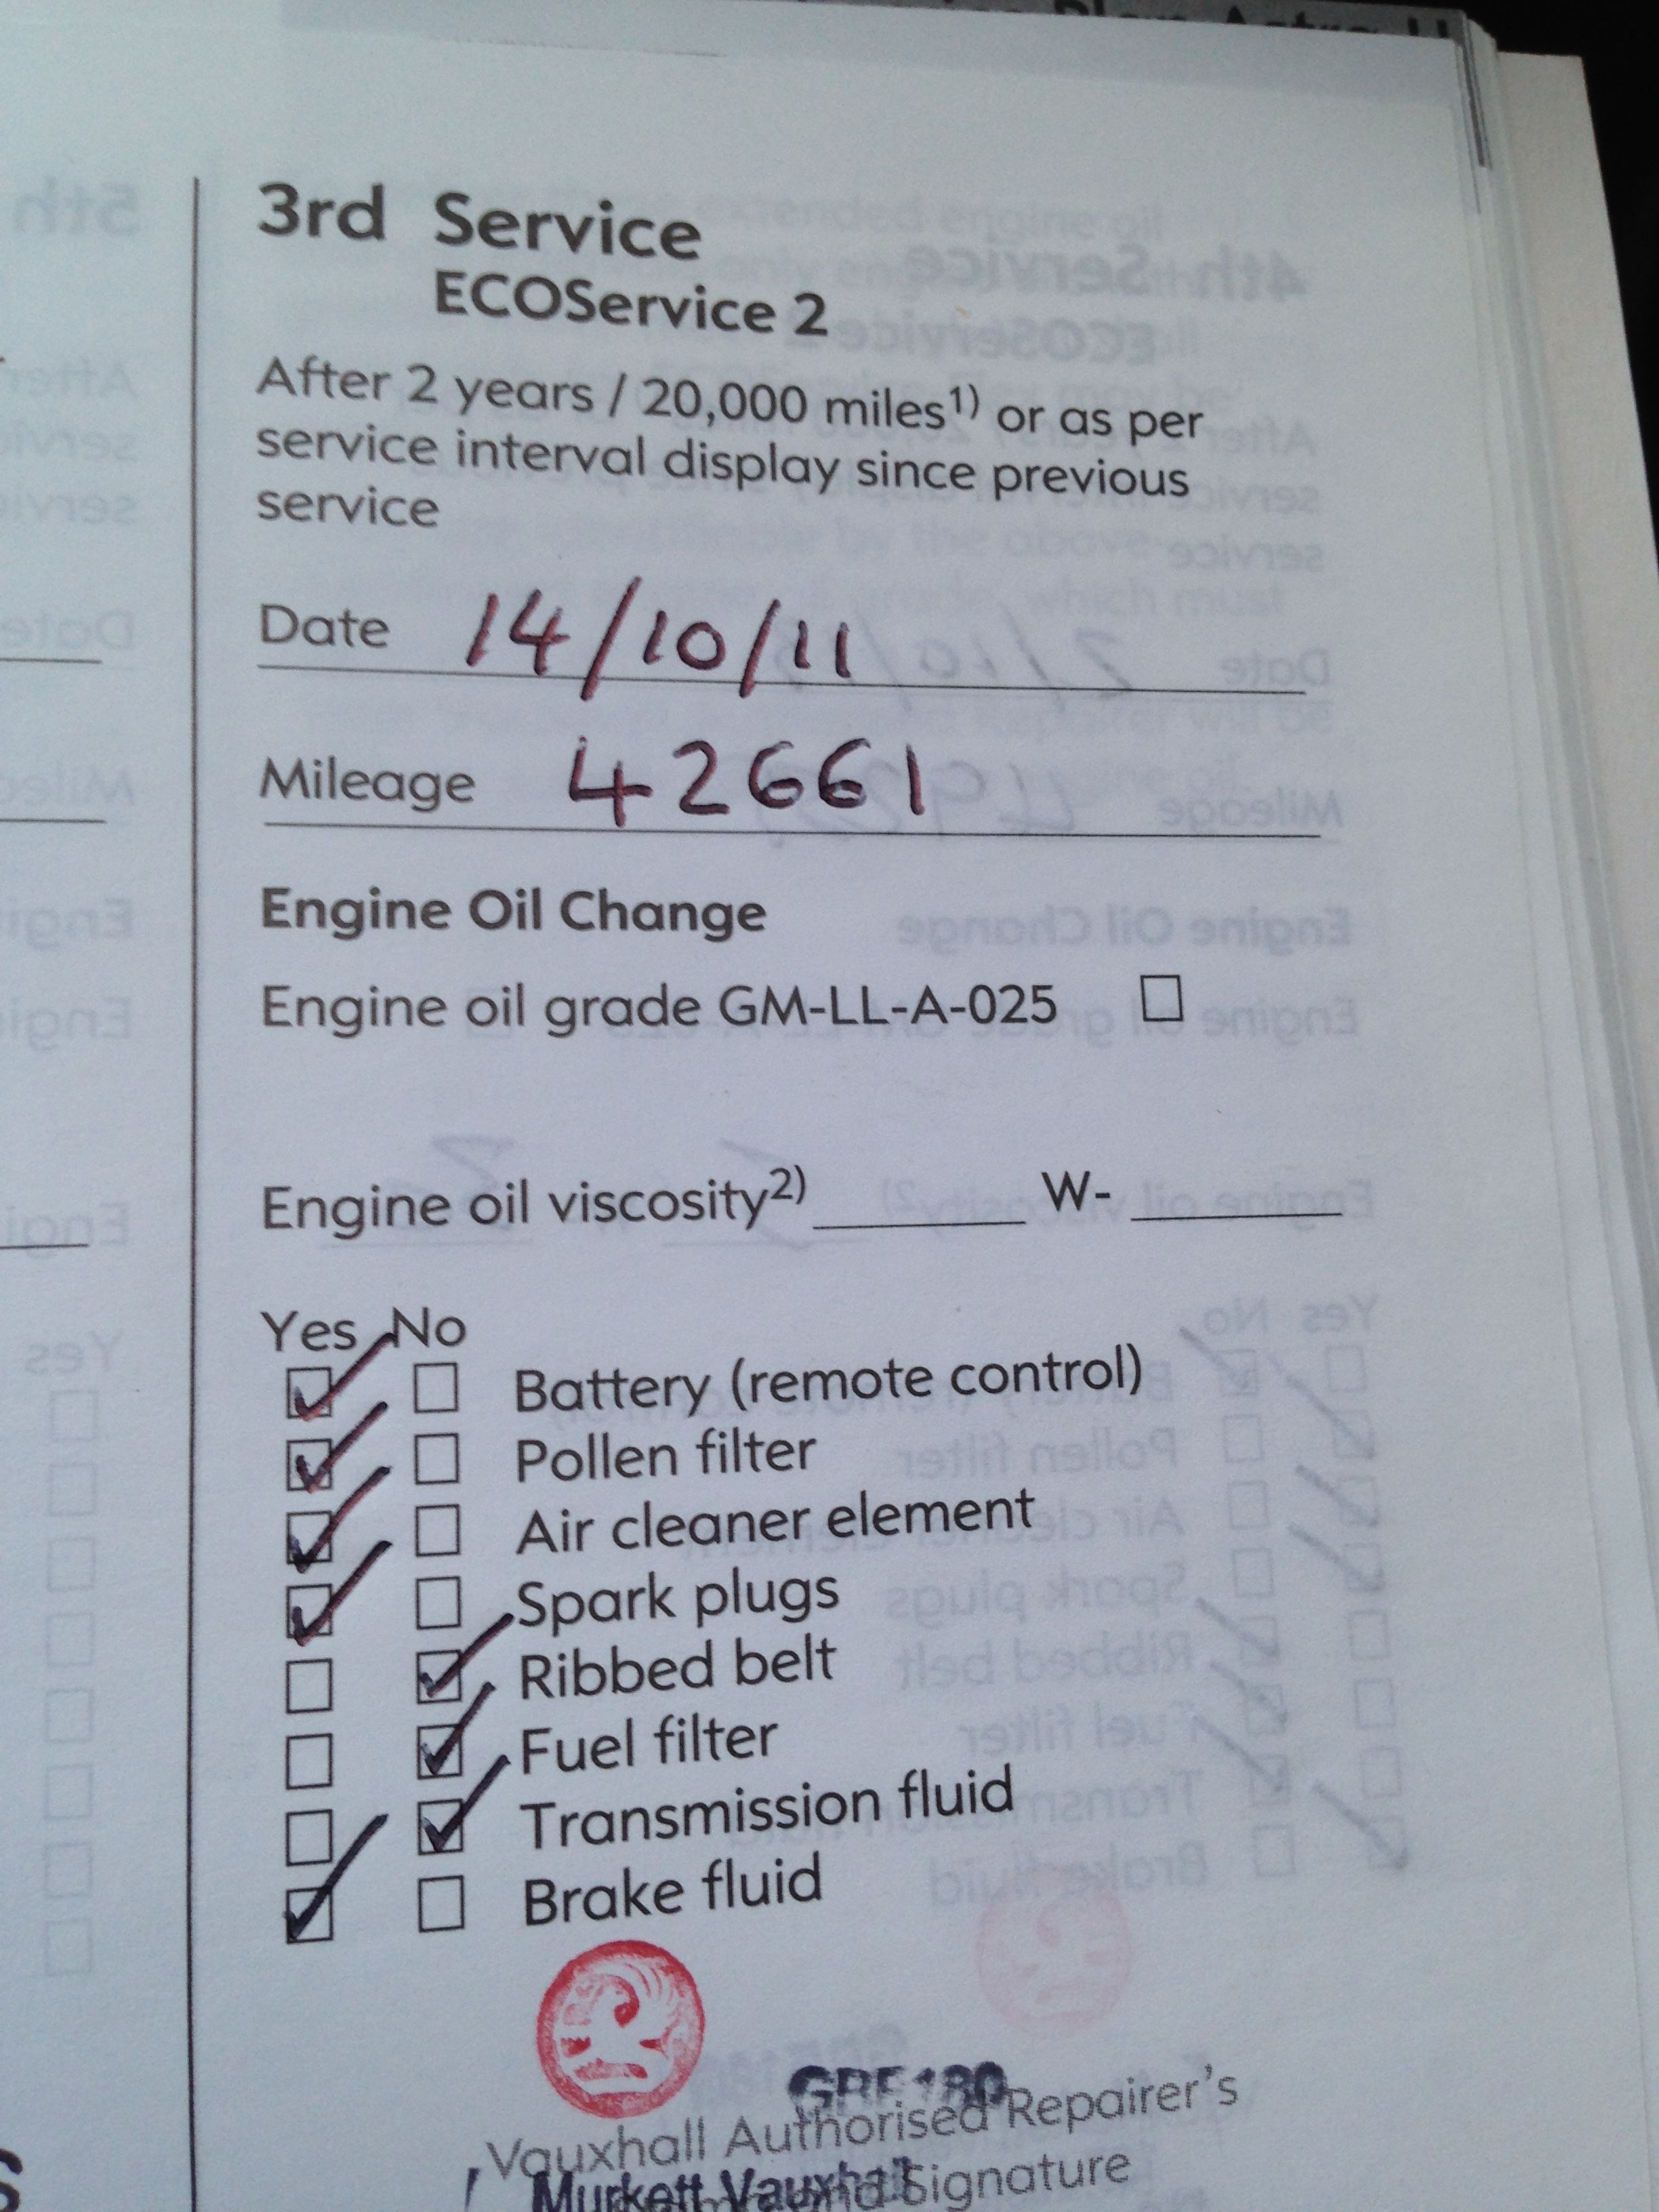 3rd Service
ECOService 2
After 2 years / 20,000 miles1) or as per
service interval display since previous
service
Date 14/10/11
Mileage 42661
Engine Oil Change
Engine oil grade GM-LL-A-025
Engine oil viscosity2) ________ W- ________
Yes No
Battery (remote control)
Pollen filter
Air cleaner element
Spark plugs
Ribbed belt
Fuel filter
Transmission fluid
Brake fluid
Vauxhall Authorised Repairer's
Murkett Vauxhall
Signature